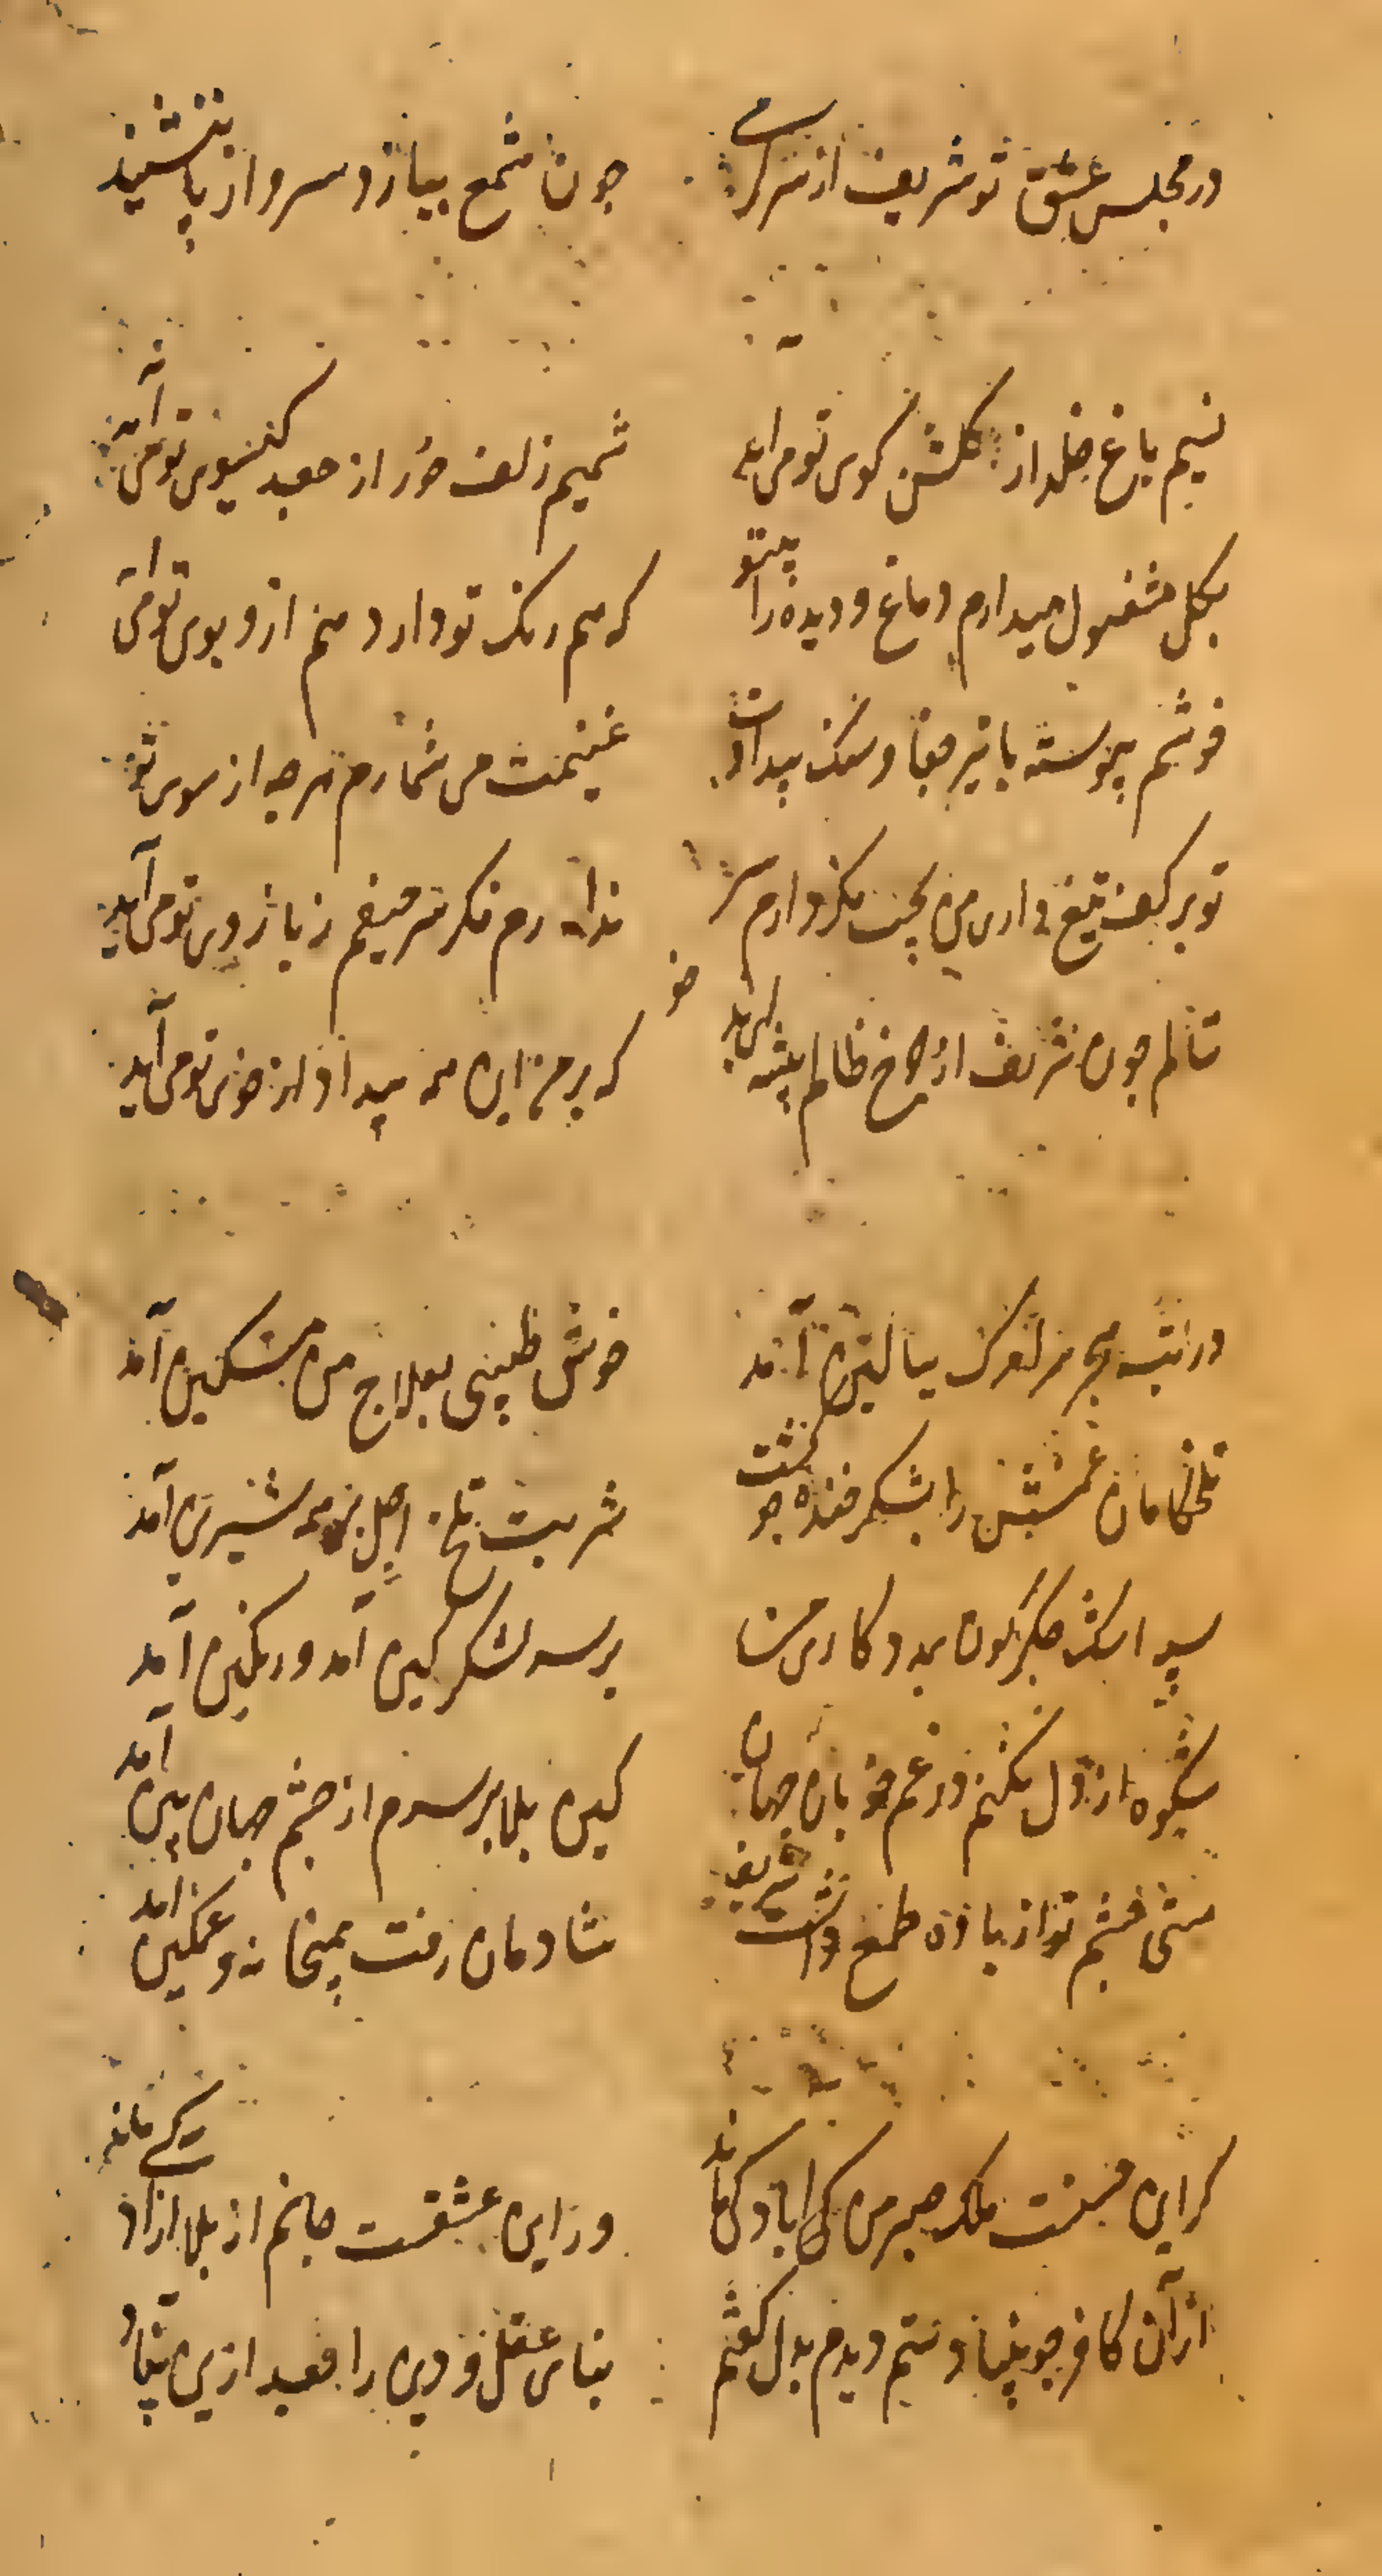 در مجلس عشق تو شریف از سر گرمی
چون شمع بیازد سر و از پا ننشیند
نسیم باغ خلد از گلشن کوی تو می آید
شمیم زلف حور از جعد گیسوی تو می آید
بکل مشغول میدارم دماغ و دیده را بیتو
که هم رنک تو دارد هم ازو بوی تو می آ
خوشم پیوسته با تیر جفا و سنک بیدادت
غنیمت می شمارم هرچه از سوی تو
تو بر کف تیغ داری من بکف سر
ندارم فکر سر حیفم ز بازوی تو می آید
تالم چون شریف از چرخ ظالم پیشه
که بر من این همه بیداد از خوی تو می آید
در شب هجر مرا مرک ببالین آمد
خوش طبیبی بعلاج من مسکین آمد
تلخکامان غمش را بشکر خنده چو کشت
شربت تلخ اجل بر همه شیرین آمد
سپه اشک جگرگون بمددکاری من
بر سر لشکر کین آمد و رنکین آمد
شکوه از دل نکنم در غم خوبان جهان
کین بلا بر سرم از چشم جهان بین آمد
مستی چشم تو از باده طمع داشت شریف
شادمان رفت بمیخانه و غمکین آمد
کر این حسنت ملک صبر من کی اباد کی ماند
ور این عشقست جانم از بلا ازاد کی ماند
از آن کافر چو بنیاد ستم دیدم بدل کفتم
بنای عقل و دین را بعد ازین بنیاد